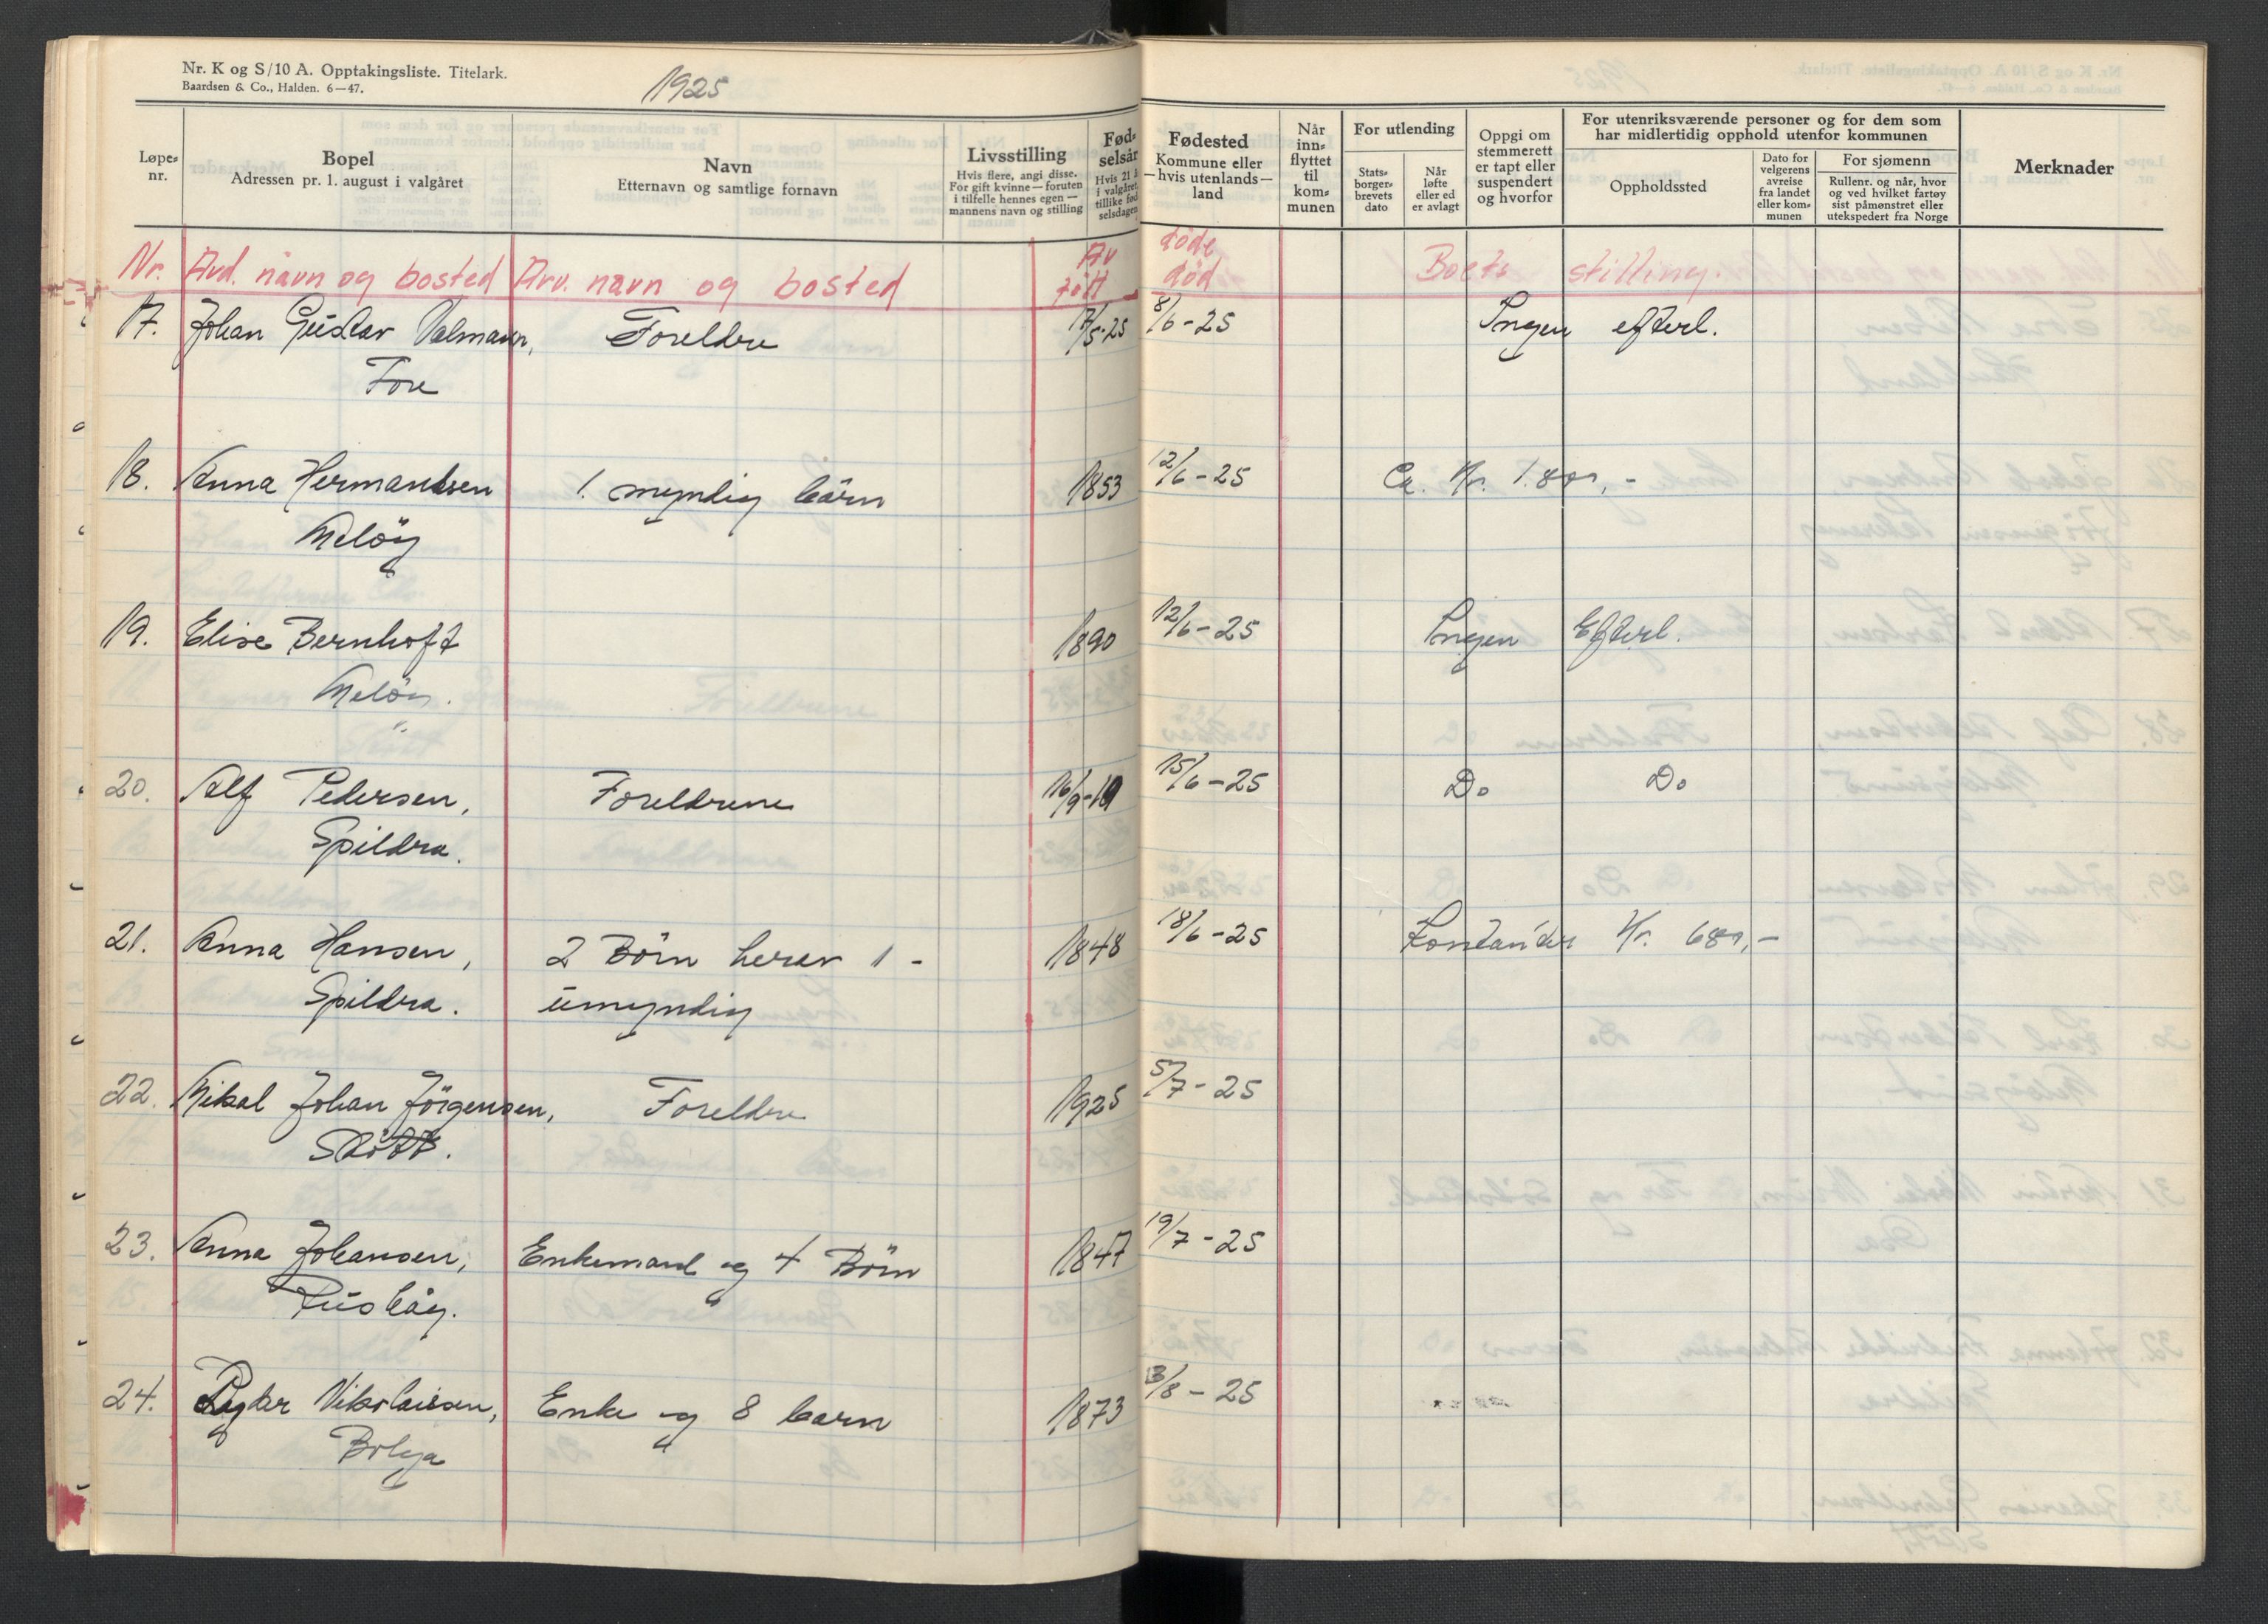 Nr. K og S/10 A. Opptakingsliste. Titelark.
Baardsen & Co., Halden. 6—47.
1925
Løpe-nr.
Bopel
Adressen pr. 1. august i valgåret
Navn
Etternavn og samtlige fornavn
Livsstilling
Hvis flere, angi disse.
For gift kvinne — foruten
i tilfelle hennes egen —
mannens navn og stilling
Fød-
selsår
Hvis 21 å
i valgåret,
tillike fød
selsdagen
Fødested
Kommune eller
— hvis utenlands —
land
Når
inn-
flyttet
til
kom-
munen
For utlending
Stats-
borger-
brevets
dato
Når
løfte
eller ed
er avlagt
Oppgi om
stemmerett
er tapt eller
suspendert
og hvorfor
For utenriksværende personer og for dem som
har midlertidig opphold utenfor kommunen
Oppholdssted
Dato for
velgerens
avreise
fra landet
eller kom-
munen
For sjømenn
Rullenr. og når, hvor
og ved hvilket fartøy
sist påmønstret eller
utekspedert fra Norge
Merknader
Av døde
Nr. Avd. navn og bosted Arv. navn og bosted født død Boets stilling.
17. Johan Gustav Valmann, Foreldre 17/5-25 8/6-25 Ingen efterl.
Fore
18. Anna Hermandsen 1. myndig barn 1853 12/6-25 Ca. Kr. 1.800,-
Meløy
19. Elise Bernhoft 1890 12/6-25 Ingen Efterl.
Meløy.
20. Alf Pedersen, Foreldrene 16/9-19 15/6-25 Do Do
Spildra.
21. Anna Hansen, 2 Børn herav 1 - 1848 18/6-25 Kontanter Kr. 680,-
Spildra. umyndig
22. Mikal Johan Jörgensen, Foreldre 1925 5/7-25
Skött.
23. Anna Johansen, Enkemand og 4 Børn 1847 19/7-25
24. Nikolaisen, Enke og 8 barn 1873 3/8-25
Bolga